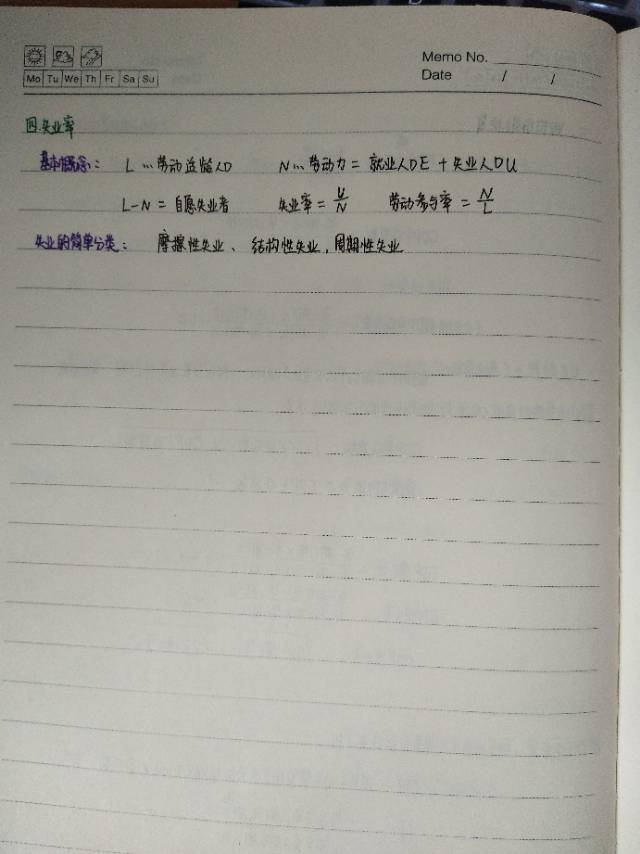 Memo No.
Mo Tu We Th Fr Sa Su
Date / /
四.失业率
基本概念: L…劳动适龄人口 N…劳动力 = 就业人口E + 失业人口U
L-N = 自愿失业者 失业率 = U/N 劳动参与率 = N/L
失业的简单分类: 摩擦性失业、结构性失业,周期性失业